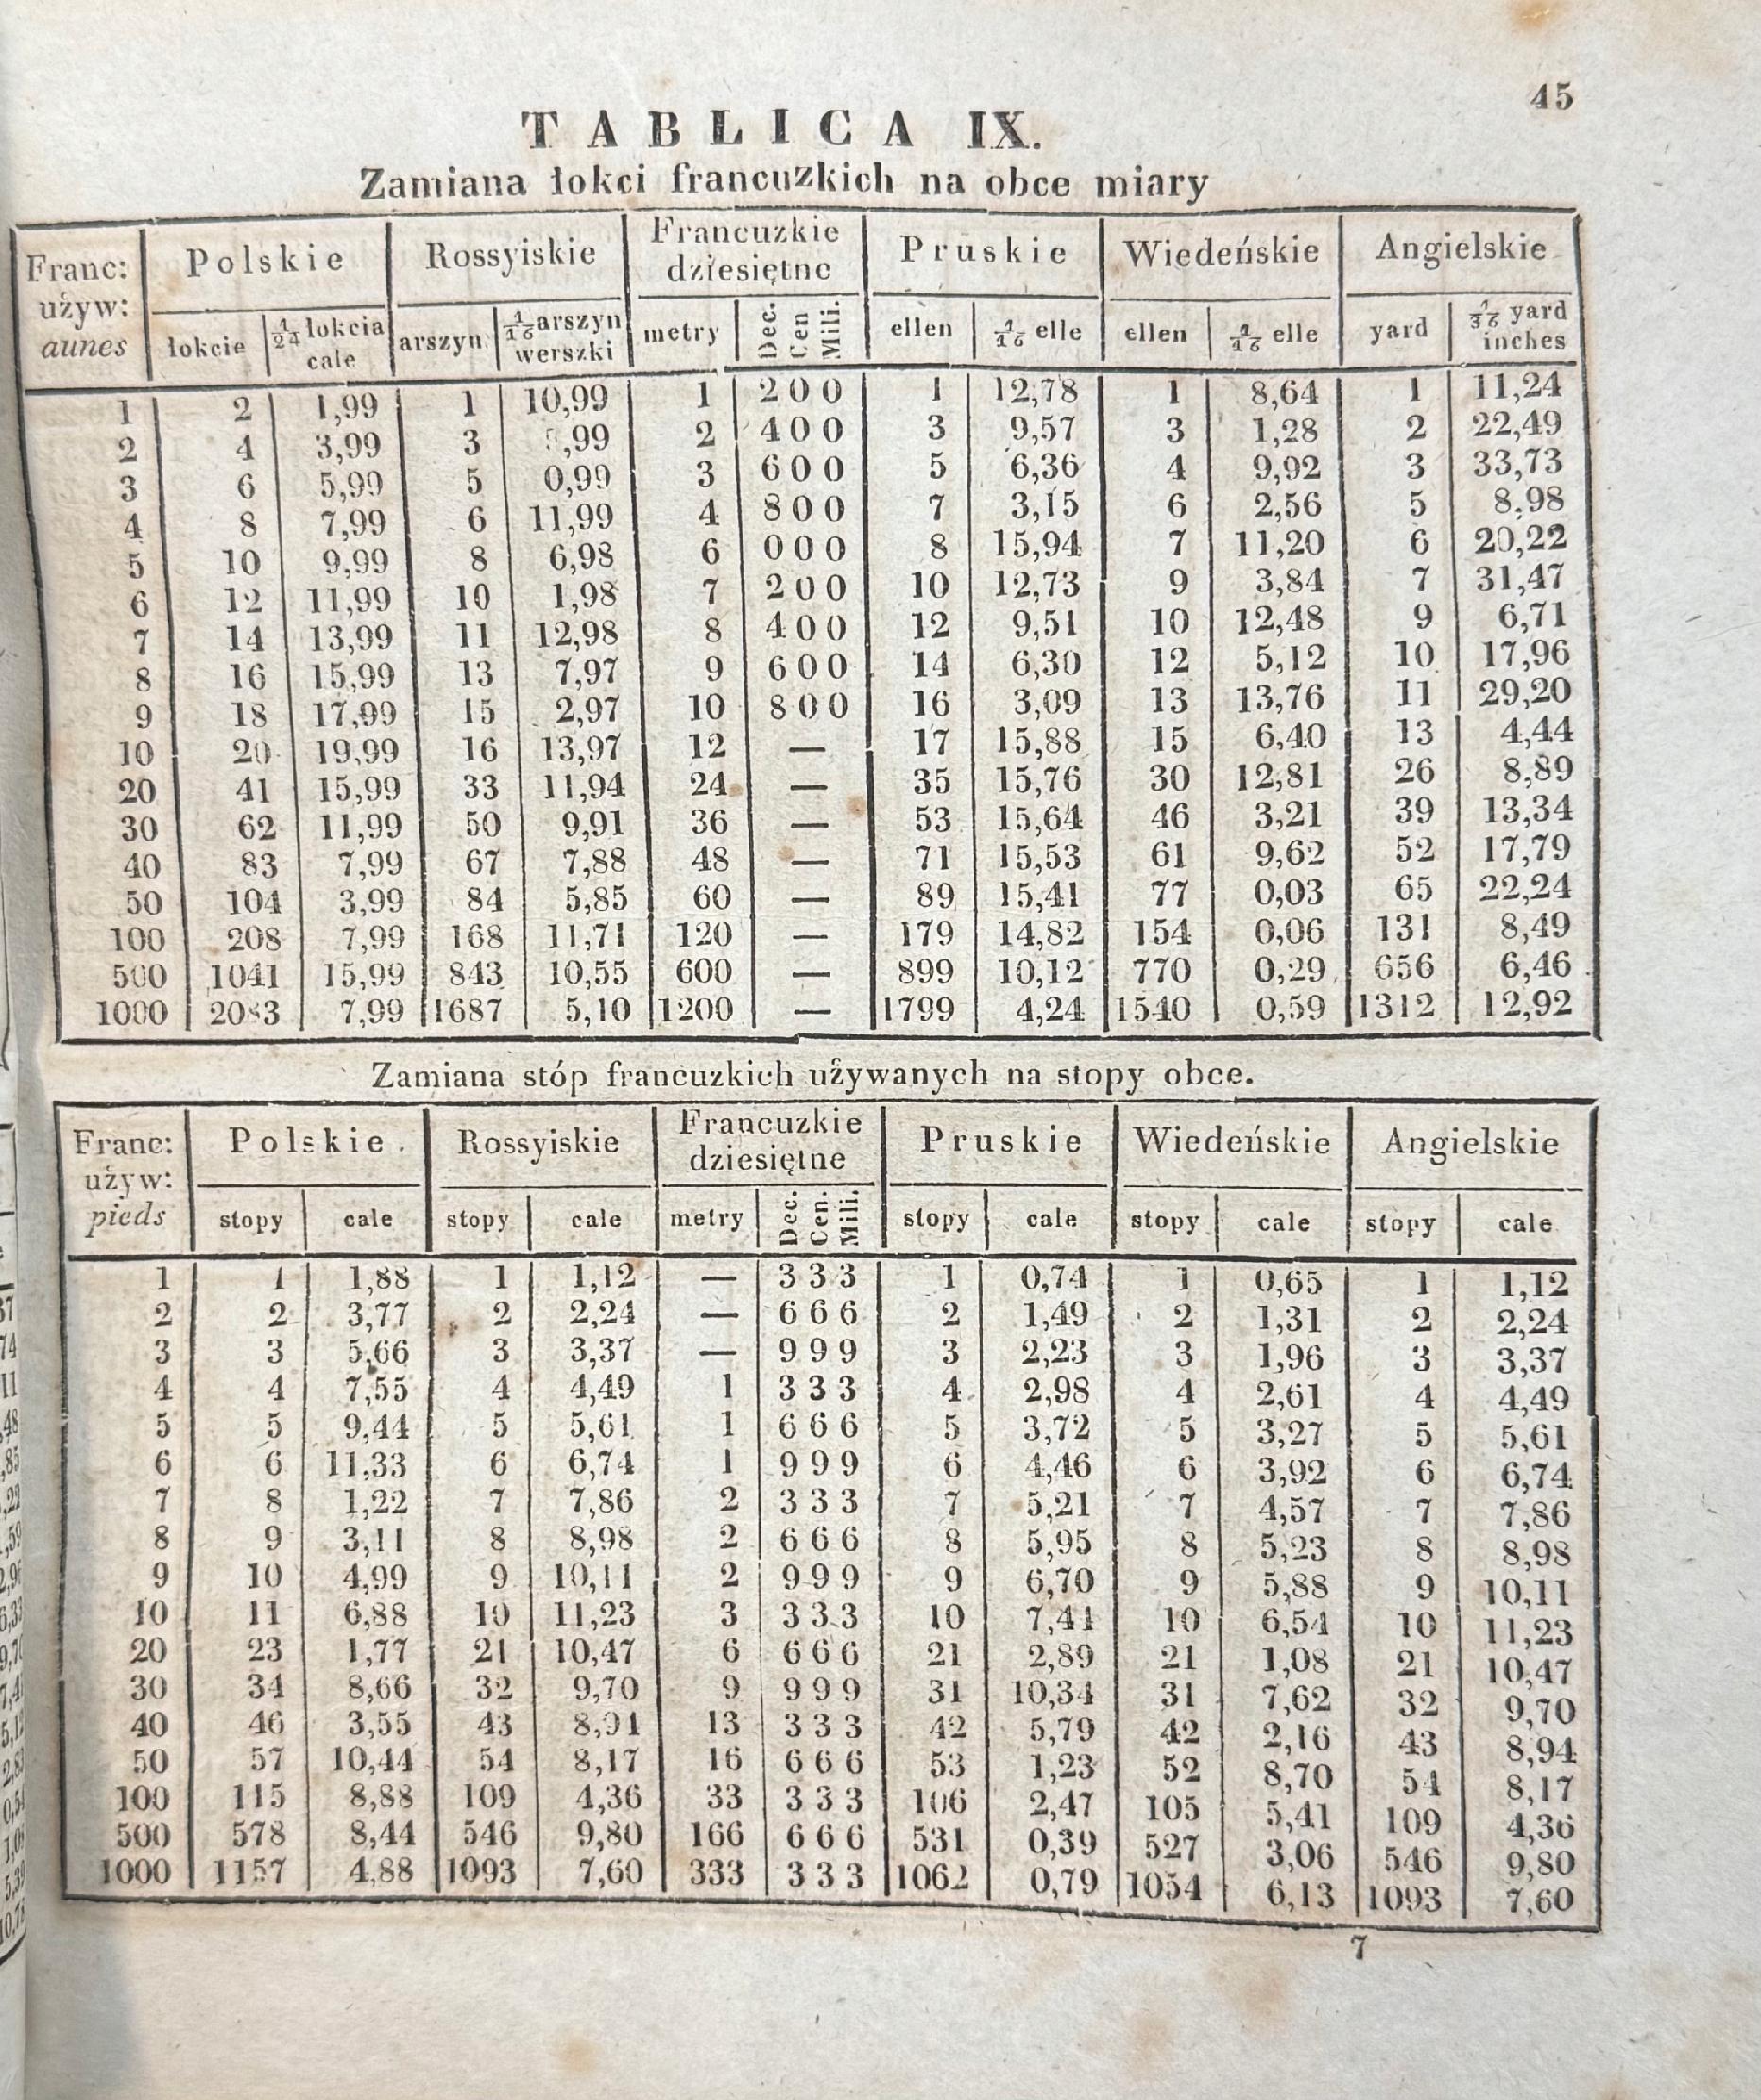 45
TABLICA IX.
Zamiana łokci francuzkich na obce miary
Franc: używ: aunes | Polskie | Rossyiskie | Francuzkie dziesiętne | Pruskie | Wiedeńskie | Angielskie
łokcie | 1/24 łokcia cale | arszyn | 1/16 arszyn werszki | metry | Dec. Cen Mili. | ellen | 1/16 elle | ellen | 1/16 elle | yard | 1/36 yard inches
1 | 2 | 1,99 | 1 | 10,99 | 1 | 2 0 0 | 1 | 12,78 | 1 | 8,64 | 1 | 11,24
2 | 4 | 3,99 | 3 | ,99 | 2 | 4 0 0 | 3 | 9,57 | 3 | 1,28 | 2 | 22,49
3 | 6 | 5,99 | 5 | 0,99 | 3 | 6 0 0 | 5 | 6,36 | 4 | 9,92 | 3 | 33,73
4 | 8 | 7,99 | 6 | 11,99 | 4 | 8 0 0 | 7 | 3,15 | 6 | 2,56 | 5 | 8,98
5 | 10 | 9,99 | 8 | 6,98 | 6 | 0 0 0 | 8 | 15,94 | 7 | 11,20 | 6 | 20,22
6 | 12 | 11,99 | 10 | 1,98 | 7 | 2 0 0 | 10 | 12,73 | 9 | 3,84 | 7 | 31,47
7 | 14 | 13,99 | 11 | 12,98 | 8 | 4 0 0 | 12 | 9,51 | 10 | 12,48 | 9 | 6,71
8 | 16 | 15,99 | 13 | 7,97 | 9 | 6 0 0 | 14 | 6,30 | 12 | 5,12 | 10 | 17,96
9 | 18 | 17,99 | 15 | 2,97 | 10 | 8 0 0 | 16 | 3,09 | 13 | 13,76 | 11 | 29,20
10 | 20 | 19,99 | 16 | 13,97 | 12 | — | 17 | 15,88 | 15 | 6,40 | 13 | 4,44
20 | 41 | 15,99 | 33 | 11,94 | 24 | — | 35 | 15,76 | 30 | 12,81 | 26 | 8,89
30 | 62 | 11,99 | 50 | 9,91 | 36 | — | 53 | 15,64 | 46 | 3,21 | 39 | 13,34
40 | 83 | 7,99 | 67 | 7,88 | 48 | — | 71 | 15,53 | 61 | 9,62 | 52 | 17,79
50 | 104 | 3,99 | 84 | 5,85 | 60 | — | 89 | 15,41 | 77 | 0,03 | 65 | 22,24
100 | 208 | 7,99 | 168 | 11,71 | 120 | — | 179 | 14,82 | 154 | 0,06 | 131 | 8,49
500 | 1041 | 15,99 | 843 | 10,55 | 600 | — | 899 | 10,12 | 770 | 0,29 | 656 | 6,46
1000 | 2083 | 7,99 | 1687 | 5,10 | 1200 | — | 1799 | 4,24 | 1540 | 0,59 | 1312 | 12,92
Zamiana stóp francuzkich używanych na stopy obce.
Franc: używ: pieds | Polskie. | Rossyiskie | Francuzkie dziesiętne | Pruskie | Wiedeńskie | Angielskie
stopy | cale | stopy | cale | metry | Dec. Cen. Mili. | stopy | cale | stopy | cale | stopy | cale
1 | 1 | 1,88 | 1 | 1,12 | — | 3 3 3 | 1 | 0,74 | 1 | 0,65 | 1 | 1,12
2 | 2 | 3,77 | 2 | 2,24 | — | 6 6 6 | 2 | 1,49 | 2 | 1,31 | 2 | 2,24
3 | 3 | 5,66 | 3 | 3,37 | — | 9 9 9 | 3 | 2,23 | 3 | 1,96 | 3 | 3,37
4 | 4 | 7,55 | 4 | 4,49 | 1 | 3 3 3 | 4 | 2,98 | 4 | 2,61 | 4 | 4,49
5 | 5 | 9,44 | 5 | 5,61 | 1 | 6 6 6 | 5 | 3,72 | 5 | 3,27 | 5 | 5,61
6 | 6 | 11,33 | 6 | 6,74 | 1 | 9 9 9 | 6 | 4,46 | 6 | 3,92 | 6 | 6,74
7 | 8 | 1,22 | 7 | 7,86 | 2 | 3 3 3 | 7 | 5,21 | 7 | 4,57 | 7 | 7,86
8 | 9 | 3,11 | 8 | 8,98 | 2 | 6 6 6 | 8 | 5,95 | 8 | 5,23 | 8 | 8,98
9 | 10 | 4,99 | 9 | 10,11 | 2 | 9 9 9 | 9 | 6,70 | 9 | 5,88 | 9 | 10,11
10 | 11 | 6,88 | 10 | 11,23 | 3 | 3 3 3 | 10 | 7,44 | 10 | 6,54 | 10 | 11,23
20 | 23 | 1,77 | 21 | 10,47 | 6 | 6 6 6 | 21 | 2,89 | 21 | 1,08 | 21 | 10,47
30 | 34 | 8,66 | 32 | 9,70 | 9 | 9 9 9 | 31 | 10,34 | 31 | 7,62 | 32 | 9,70
40 | 46 | 3,55 | 43 | 8,94 | 13 | 3 3 3 | 42 | 5,79 | 42 | 2,16 | 43 | 8,94
50 | 57 | 10,44 | 54 | 8,17 | 16 | 6 6 6 | 53 | 1,23 | 52 | 8,70 | 54 | 8,17
100 | 115 | 8,88 | 109 | 4,36 | 33 | 3 3 3 | 106 | 2,47 | 105 | 5,41 | 109 | 4,36
500 | 578 | 8,44 | 546 | 9,80 | 166 | 6 6 6 | 531 | 0,39 | 527 | 3,06 | 546 | 9,80
1000 | 1157 | 4,88 | 1093 | 7,60 | 333 | 3 3 3 | 1062 | 0,79 | 1054 | 6,13 | 1093 | 7,60
7